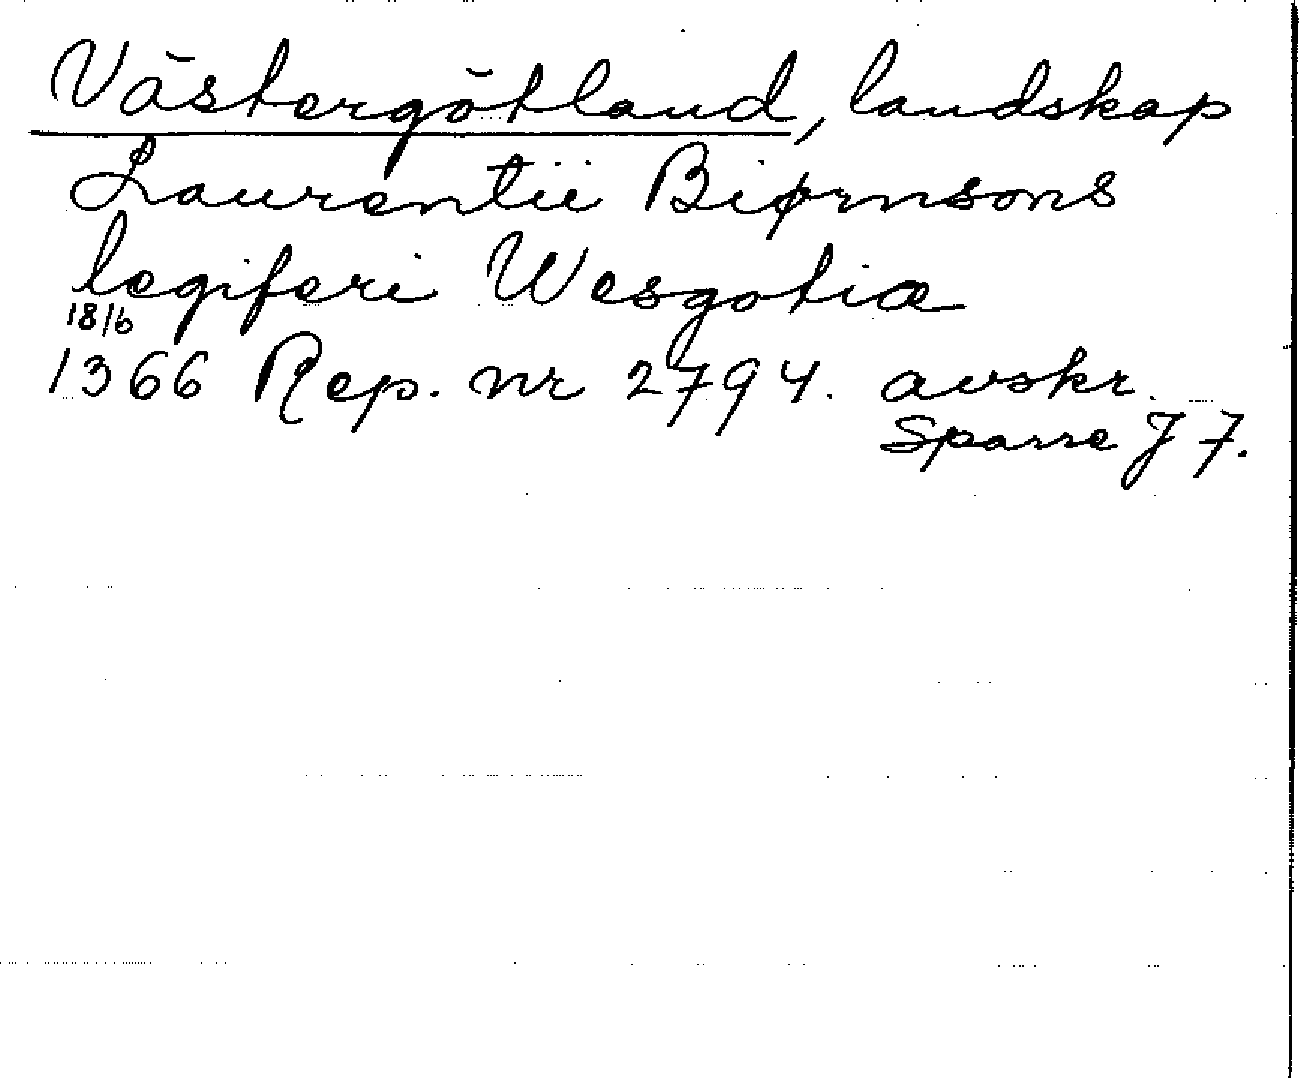 Västergötland, landskap
Laurentii Biørnsons
legiferi Wesgotiæ
18/6
1366 Rep. nr 2794. avskr.
Sparre J 7.